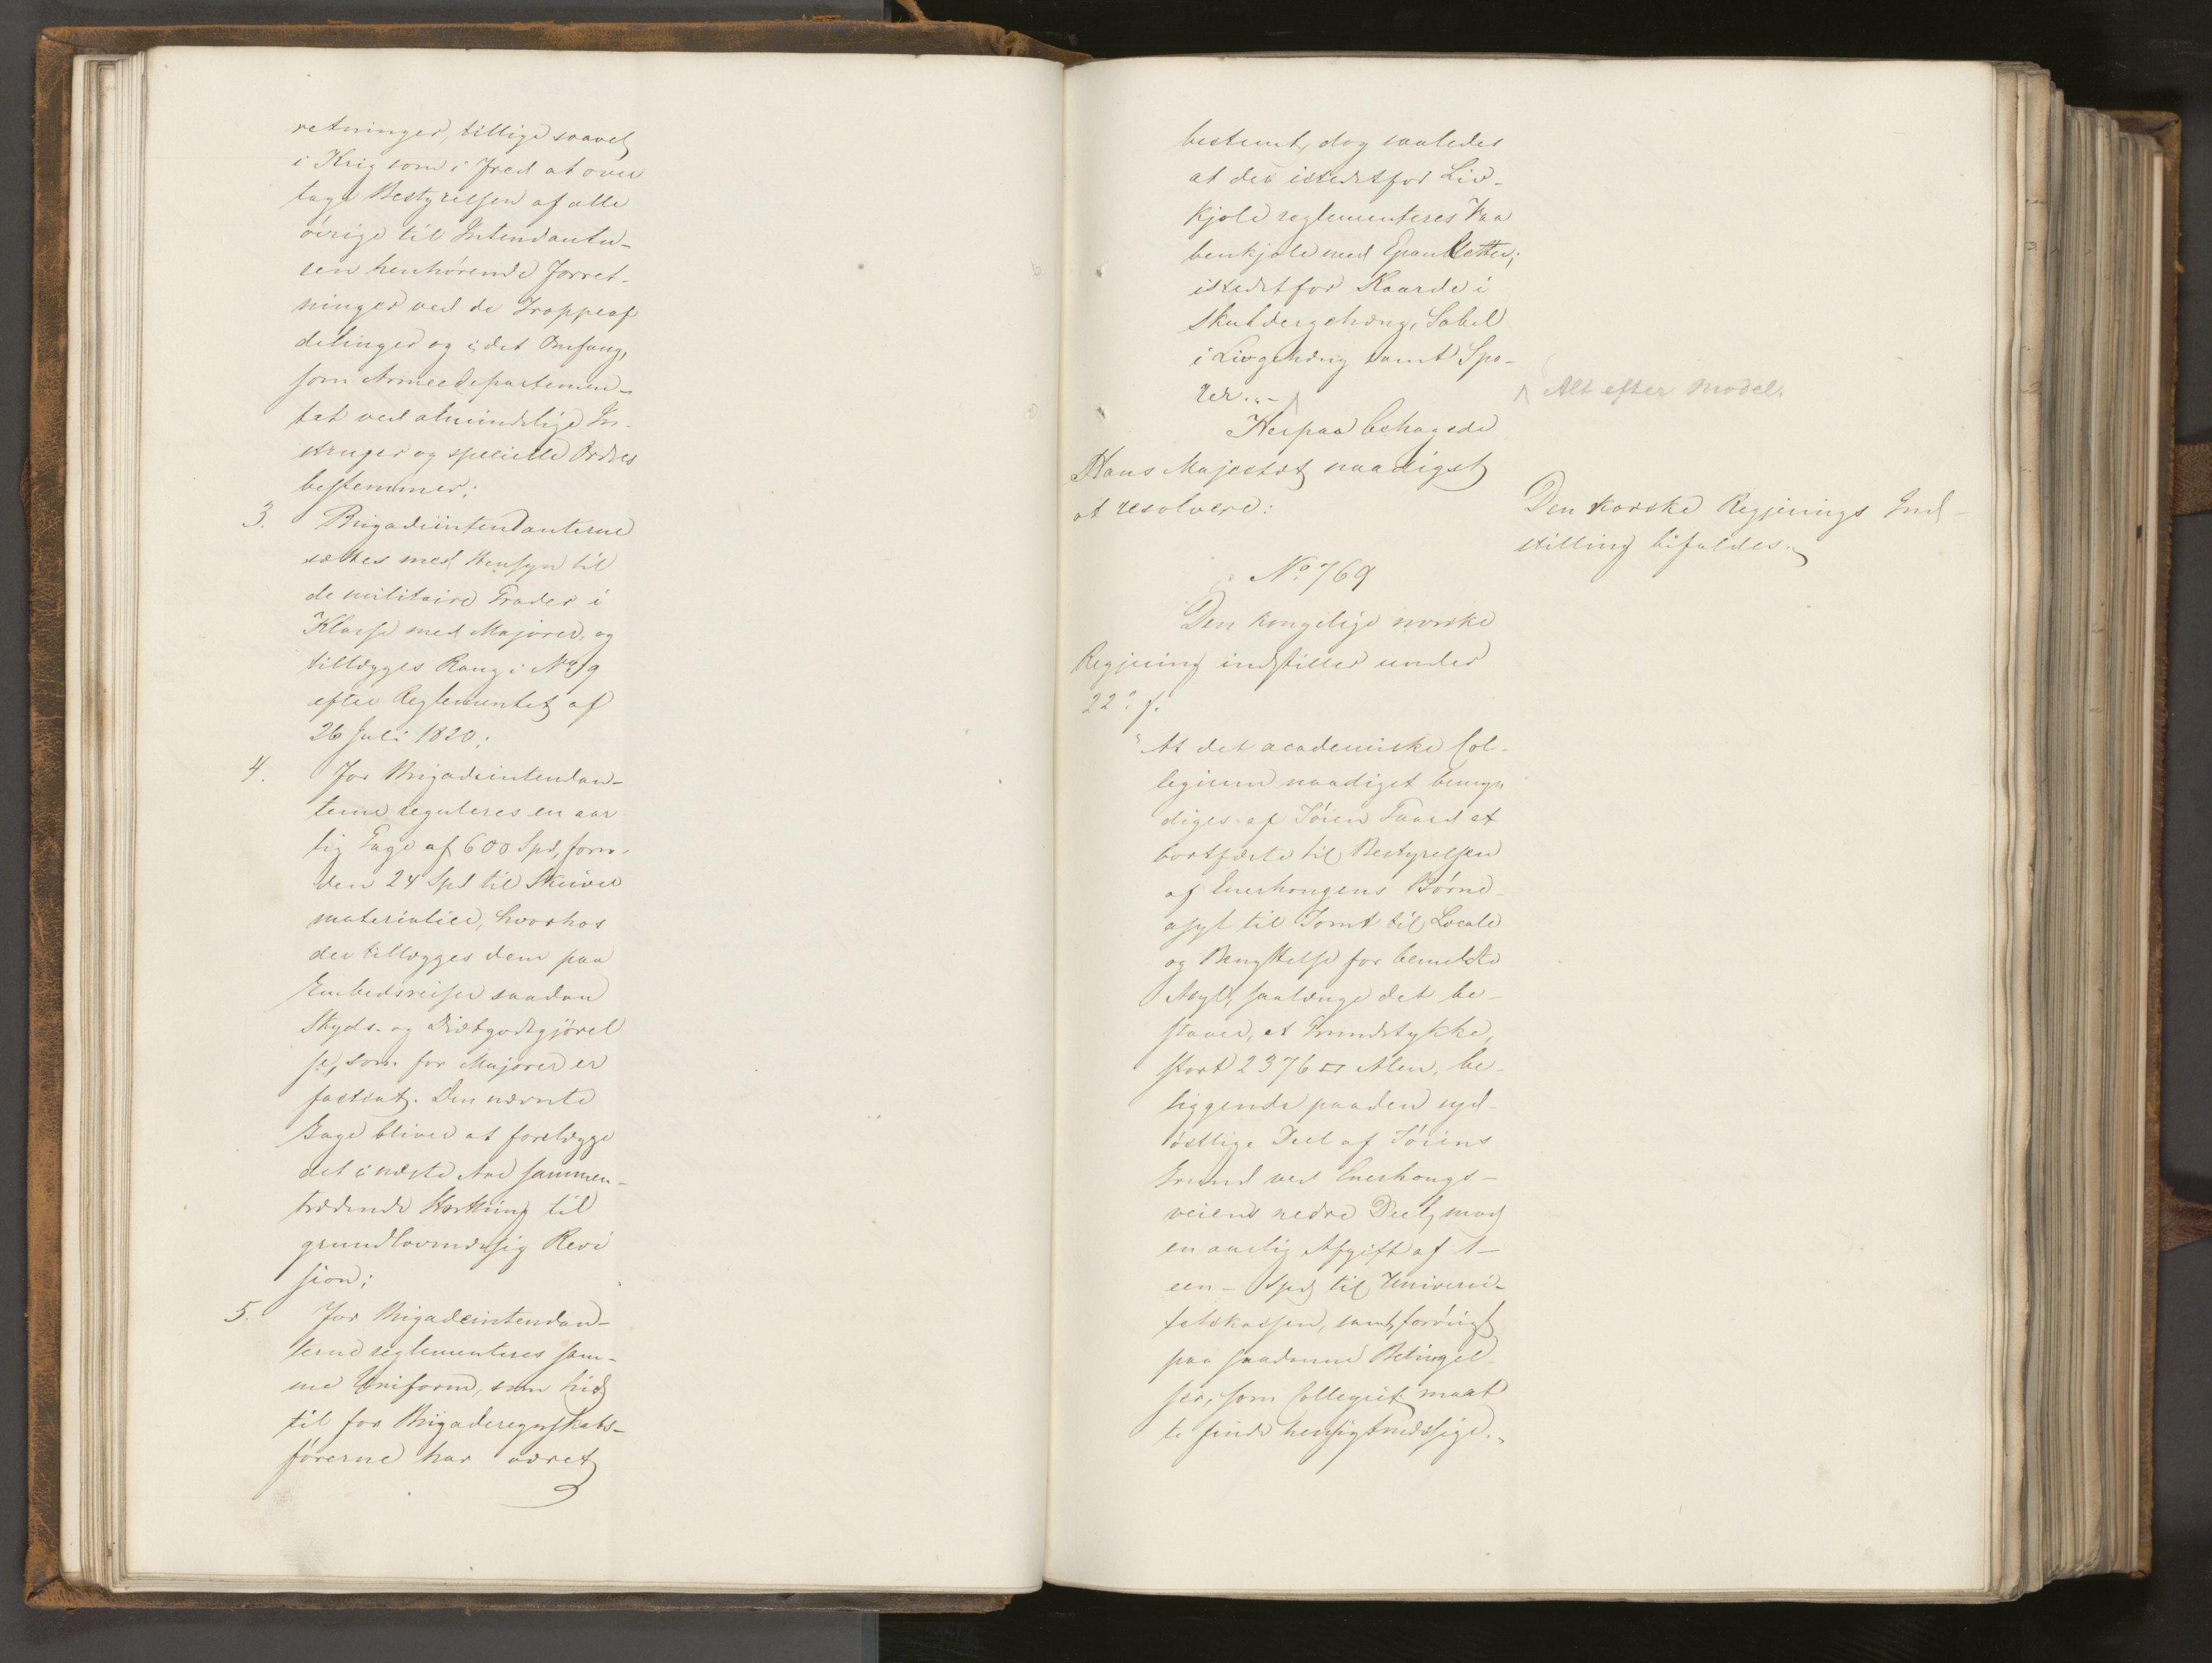 retninger, tillige saavel
i Krig som i Fred at over
tage Bestyrelsen af alle
øvrige til Intendantu-
ren henhørende Forret-
ninger ved de Troppeaf
delinger og i det Omfang,
som Armeedepartemen-
tet ved almindelige In-
struxer og specielle Ordres
bestemmer;
3. Brigadeintendanterne
sættes med Hensyn til
de militaire Grader i
Klasse med Majorer, og
tillægges Rang i No 9
efter Reglementet af
26 Juli 1820;
4. For Brigadeintendan-
terne reguleres en aar
lig Gage af 600 Spd, foru-
den 24 Spd til Skriver
materialier, hvorhos
der tillægges dem paa
Embedsreiser saadan
Skyds- og Diætgodtgjørel
se, som for Majorer er
fastsat. Den nævnte
Gage bliver at forelægge
det i næste Aar sammen-
trædende Storthing til
grundlovmæssig Revi
sion;
5. For Brigadeintendan-
terne reglementeres sam-
me Uniform, som hid
til for Brigaderegnskabs-
førerne har været
bestemt, dog saaledes
at der istedetfor Liv-
kjole reglementeres Vaa
benkjole med Epauletter;
istedetfor Kaarde i
Skuldergehæng, Sabel
i Livgehæng samt Spo-
rer."-
Alt efter Model.
Herpaa behagede
Hans Majestæt naadigst
at resolvere:
Den norske Regjerings Ind-
stilling bifaldes.
No 769
Den kongelige norske
Regjering indstiller under
22. f.
"At det academiske Col-
legium naadigst bemyn
diges af Tøien Gaard at
bortfæste til Bestyrelsen
af Enerhougens Børne-
asyl til Tomt til Locale
og Benyttelse for bemeldte
Asyl, saalænge det be-
staaer, et Grundstykke,
stort 2376 □ Alen, be-
liggende paa den syd-
østlige Deel af Tøiens
Grund ved Enerhougs-
veiens nedre Deel, mod
en aarlig Afgift af 1-
een - Spd til Universi-
tetskassen, samt forøvrigt
paa saadanne Betingel-
ser, som Collegiet maat
te finde hensigtsmæssige."